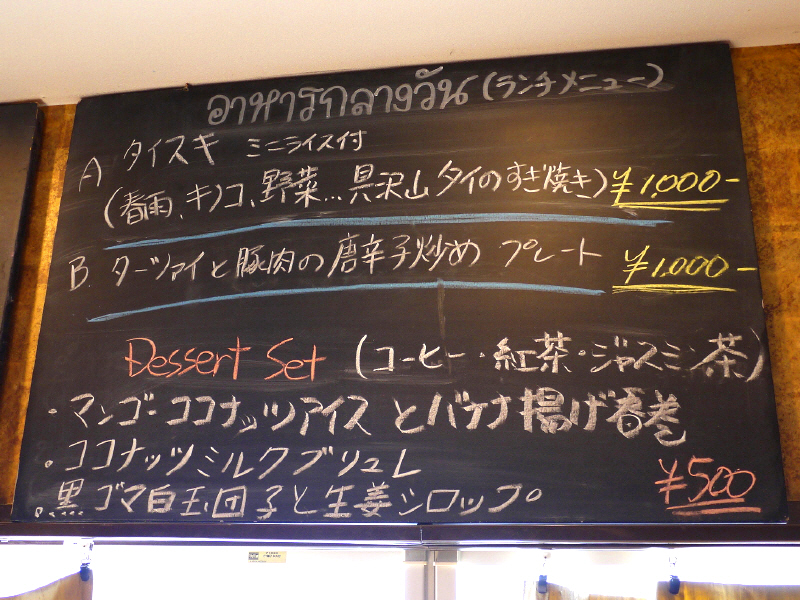 อาหารกลางวัน (ランチメニュー)
A タイスキ ミニライス付
(春雨、キノコ、野菜...具沢山タイのすき焼き) ¥1,000-
B. ターツァイと豚肉の唐辛子炒め プレート ¥1,000-
Dessert Set (コーヒー・紅茶・ジャスミン茶)
・マンゴーココナッツアイスとバナナ揚げ春巻
・ココナッツミルクブリュレ
・黒ゴマ白玉団子と生姜シロップ。 ¥500